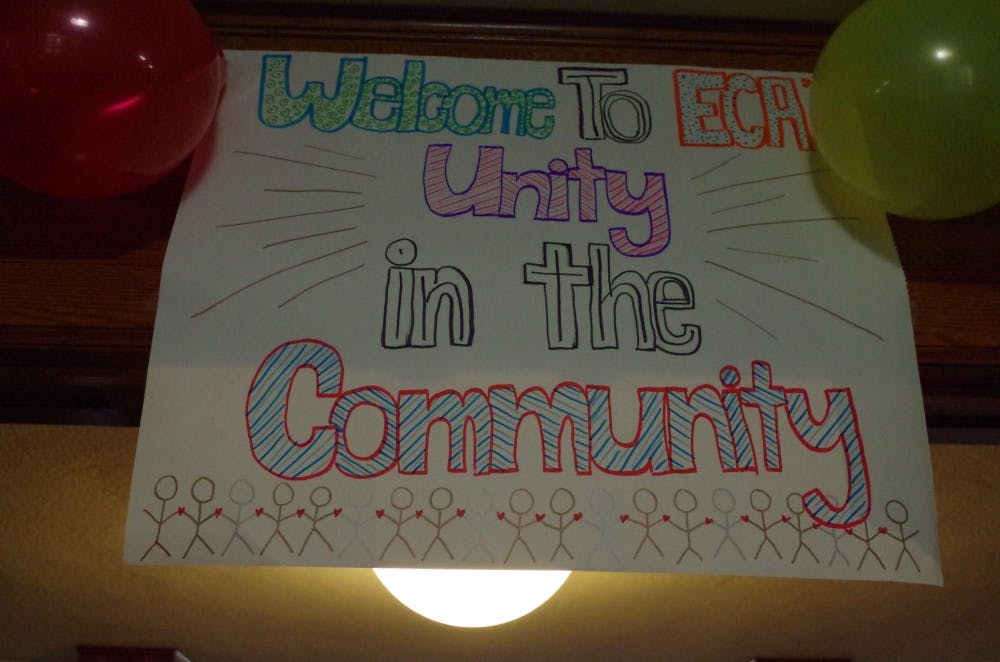 Welcome To ECA'
Unity
in the
Community